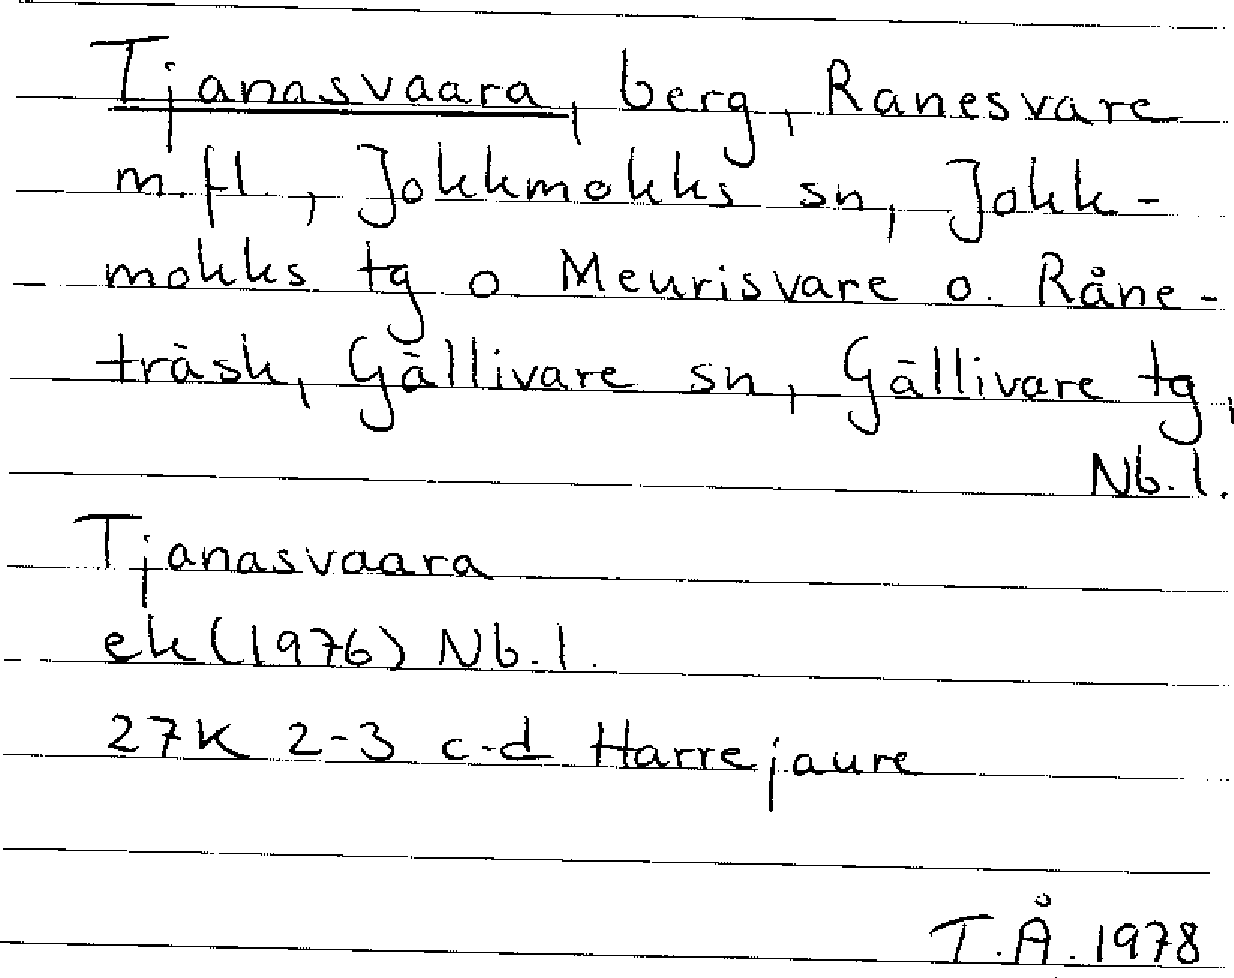 Tjanasvaara, berg, Ranesvare
m.fl., Jokkmokks sn, Jokk-
mokks tg o Meurisvare o. Råne-
träsk, Gällivare sn, Gällivare tg,
Nb.l.
Tjanasvaara
ek (1976) Nb.l.
27K 2-3 c-d Harrejaure
T.Å. 1978